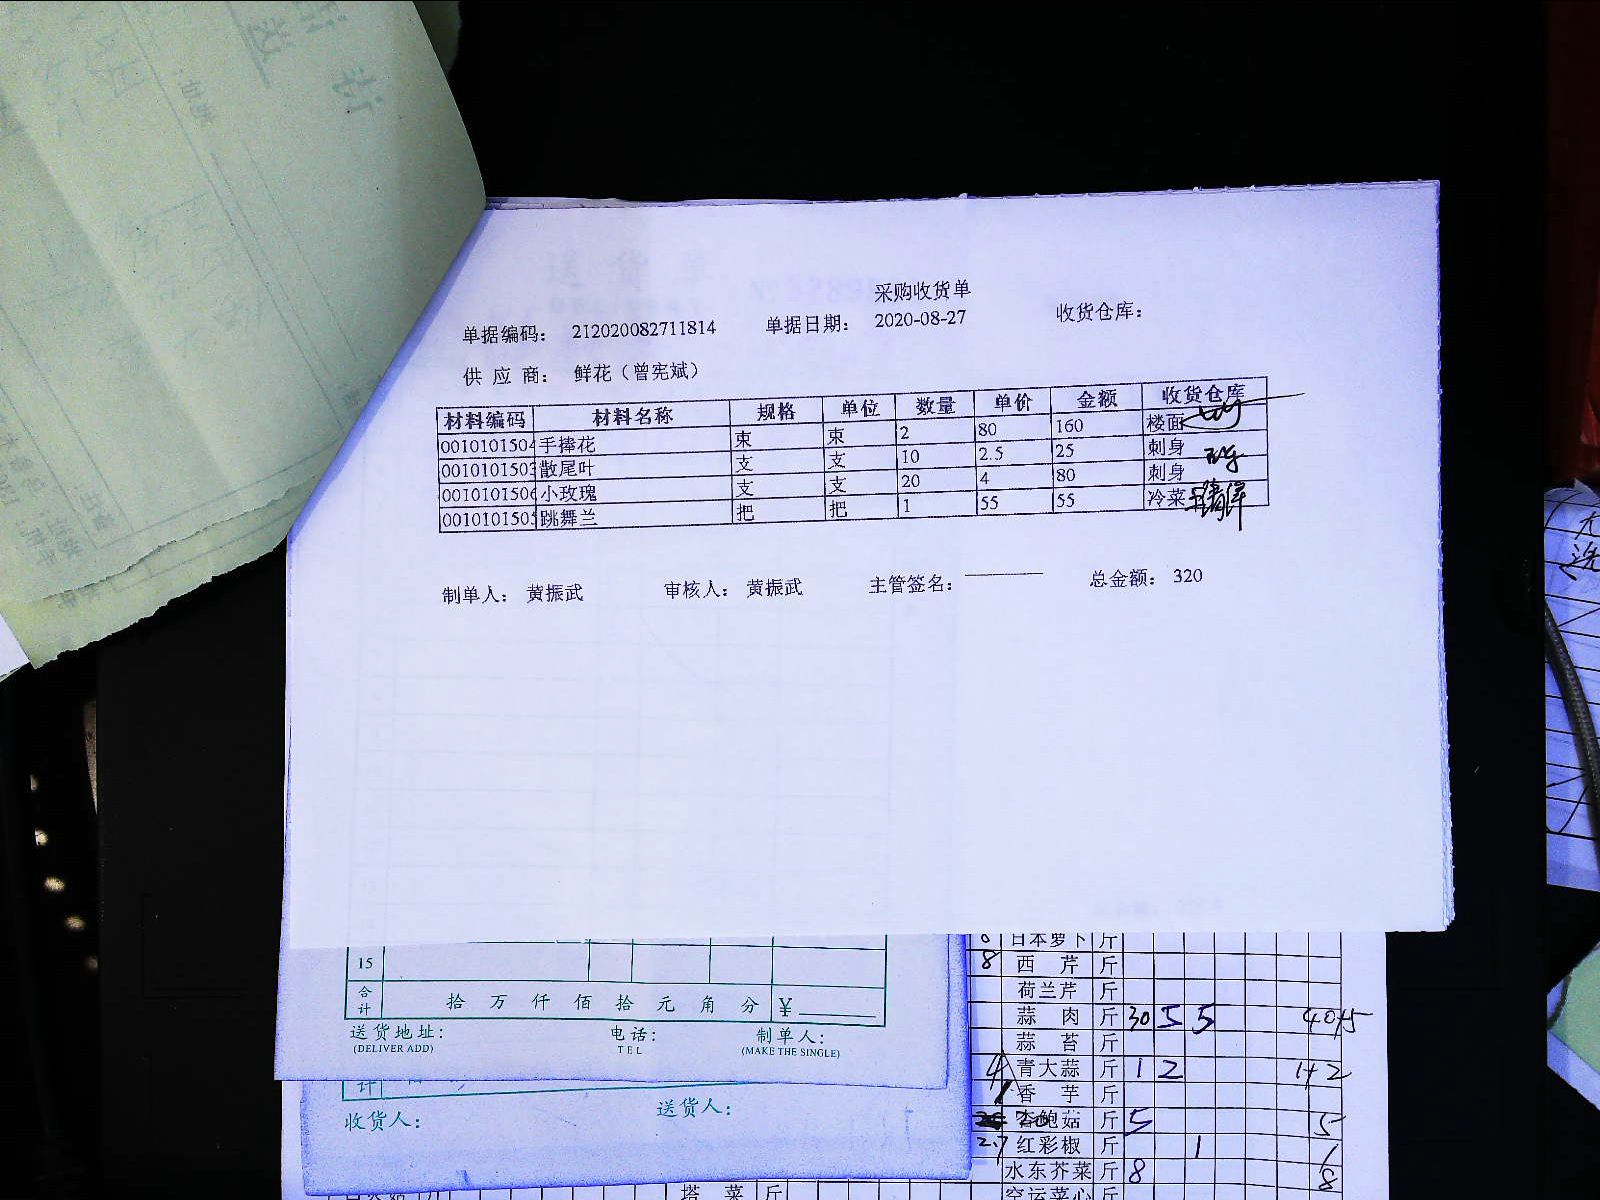 采购收货单
单据编码： 212020082711814 单据日期： 2020-08-27 收货仓库：
供 应 商： 鲜花（曾宪斌）
材料编码 材料名称 规格 单位 数量 单价 金额 收货仓库
0010101504 手捧花 束 束 2 80 160 楼面
0010101503 散尾叶 支 支 10 2.5 25 刺身
0010101506 小玫瑰 支 支 20 4 80 刺身
0010101505 跳舞兰 把 把 1 55 55 冷菜
制单人： 黄振武 审核人： 黄振武 主管签名： 总金额： 320
15
合计 拾 万 仟 佰 拾 元 角 分 ¥
送货地址： 电话： 制单人：
(DELIVER ADD) TEL (MAKE THE SINGLE)
计
收货人： 送货人：
日本萝卜 斤
8 西 芹 斤
荷兰芹 斤
蒜 肉 斤 30 5 5 40+5
蒜 苔 斤
4 青大蒜 斤 1 2 1+2
香 芋 斤
杏鲍菇 斤 5 5
2.7 红彩椒 斤 1 1
水东芥菜 斤 8 8
塔 菜 斤 空运菜心 斤